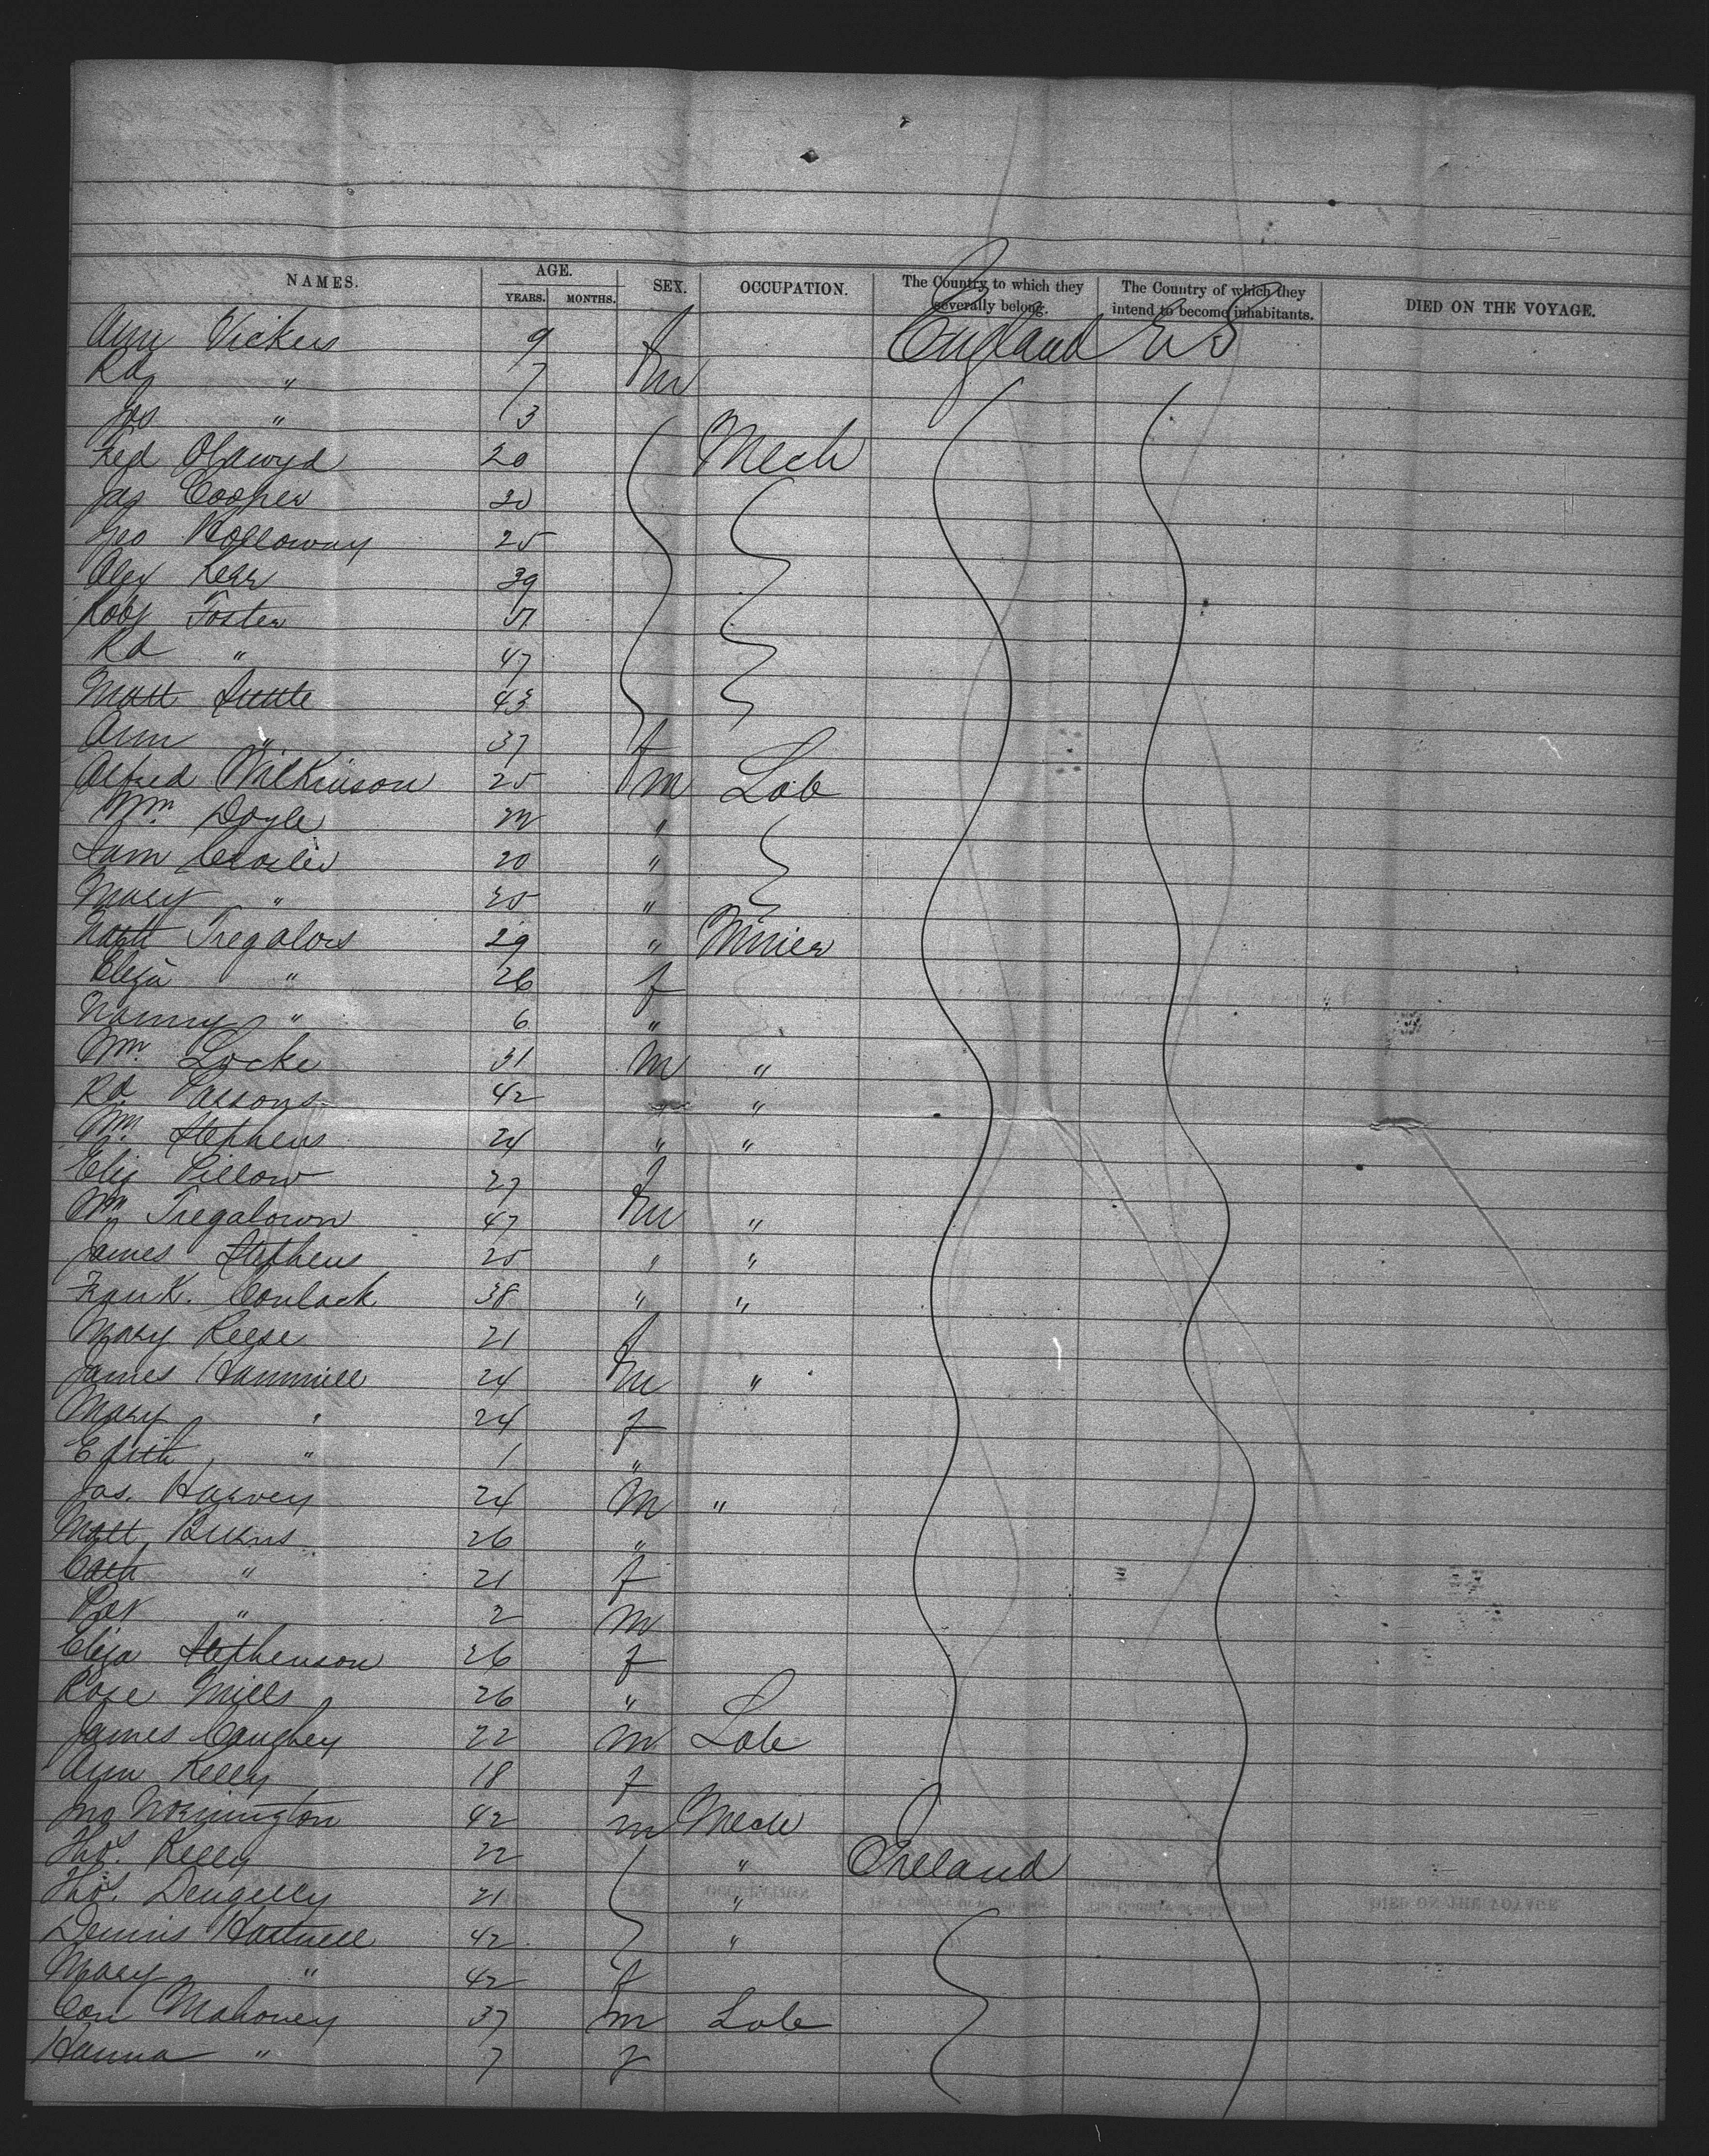 NAMES. AGE. YEARS. MONTHS. SEX. OCCUPATION. The Country to which they severally belong. The Country of which they intend to become inhabitants. DIED ON THE VOYAGE.
Ann Vickers 9 f England U S
Rd " 7 m
Jos " 3
Fred 20 Mech
Jas Cooper 20
Geo Holloway 25
Alex Kerr 39
Robt Foster
Rd " 47
Matt Suttle 43
Ann " 37 f
Alfred Wilkinson 25 m Lab
Wm Doyle "
Sam 20 "
Mary " 25 "
Tregalows 29 " Miner
Eliza " 26 f
Nanny " 6 "
Wm Locke 31 m "
Rd Parsons 42 " "
Wm Stephens 24 " "
Eliz Pillow 27 f
Wm Tregalown 47 m "
James Stephens 25 " "
Frank. Conlack 38 " "
Mary Reese 21 f
James Hammill 24 m "
Mary " 24 f
Edith " 1 "
Jas. Harvey 24 m "
Matt Burns 26 "
Cath " 21 f
Pat " 2 m
Eliza Stephenson 26 f
Rose Mills 26 "
James Caughey 22 m Lab
Ann Kelly 18 f
Jno Normington 42 m Mech
Thos. Kelly 22 " Ireland
Thos. Dengelly 21 "
Dennis Hartnell 42 "
Mary " 42 f
Con Mahoney 37 m Lab
Hanna " 7 f